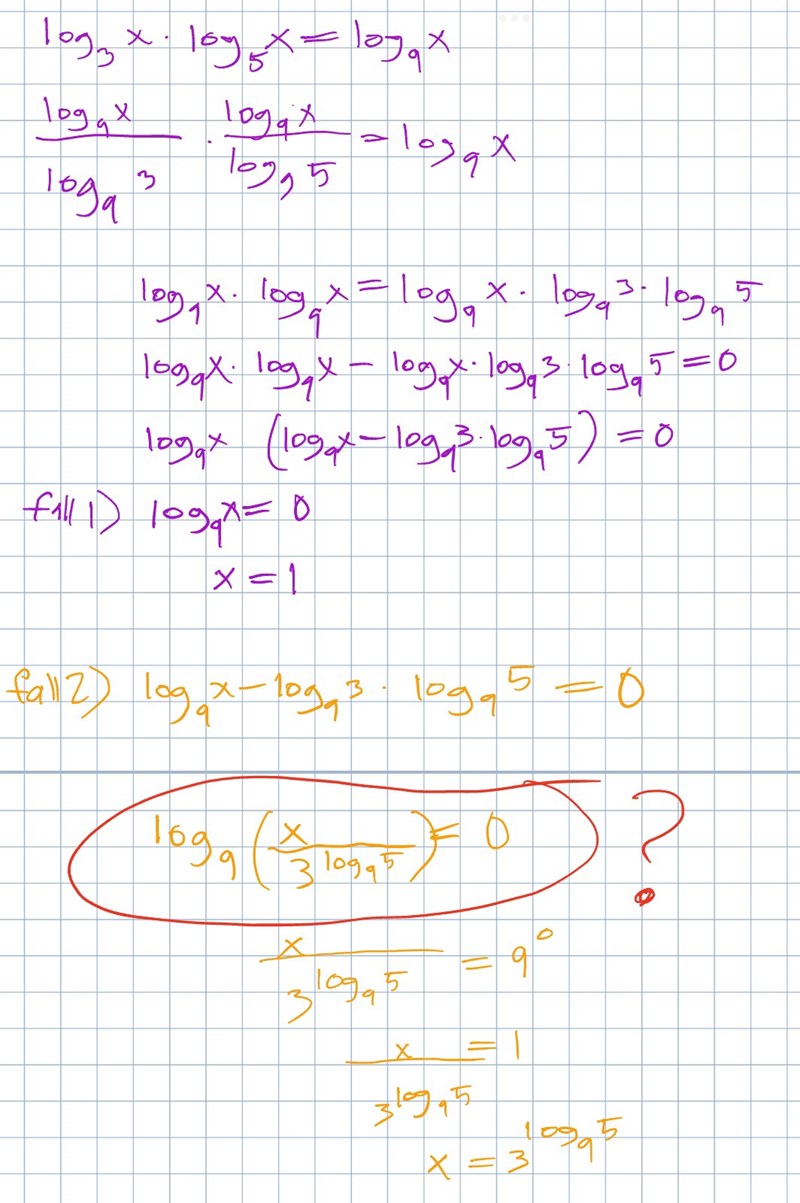 log₃ x · log₅ x = log₉ x
log₉ x / log₉ 3 · log₉ x / log₉ 5 = log₉ x
log₉ x · log₉ x = log₉ x · log₉ 3 · log₉ 5
log₉ x · log₉ x − log₉ x · log₉ 3 · log₉ 5 = 0
log₉ x (log₉ x − log₉ 3 · log₉ 5) = 0
fall 1) log₉ x = 0
x = 1
fall 2) log₉ x − log₉ 3 · log₉ 5 = 0
log₉ (x / 3^(log₉ 5)) = 0 ?
x / 3^(log₉ 5) = 9⁰
x / 3^(log₉ 5) = 1
x = 3^(log₉ 5)